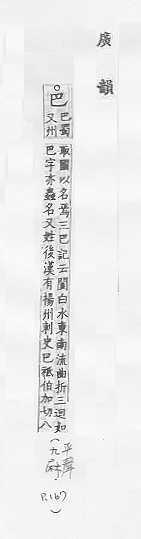 廣韻
巴
巴蜀
又州
取國以名焉三巴記云閬白水東南流曲折三迴如
巴字亦蟲名又姓後漢有揚州刺史巴祗伯加切八
(平聲
九麻
P.167)